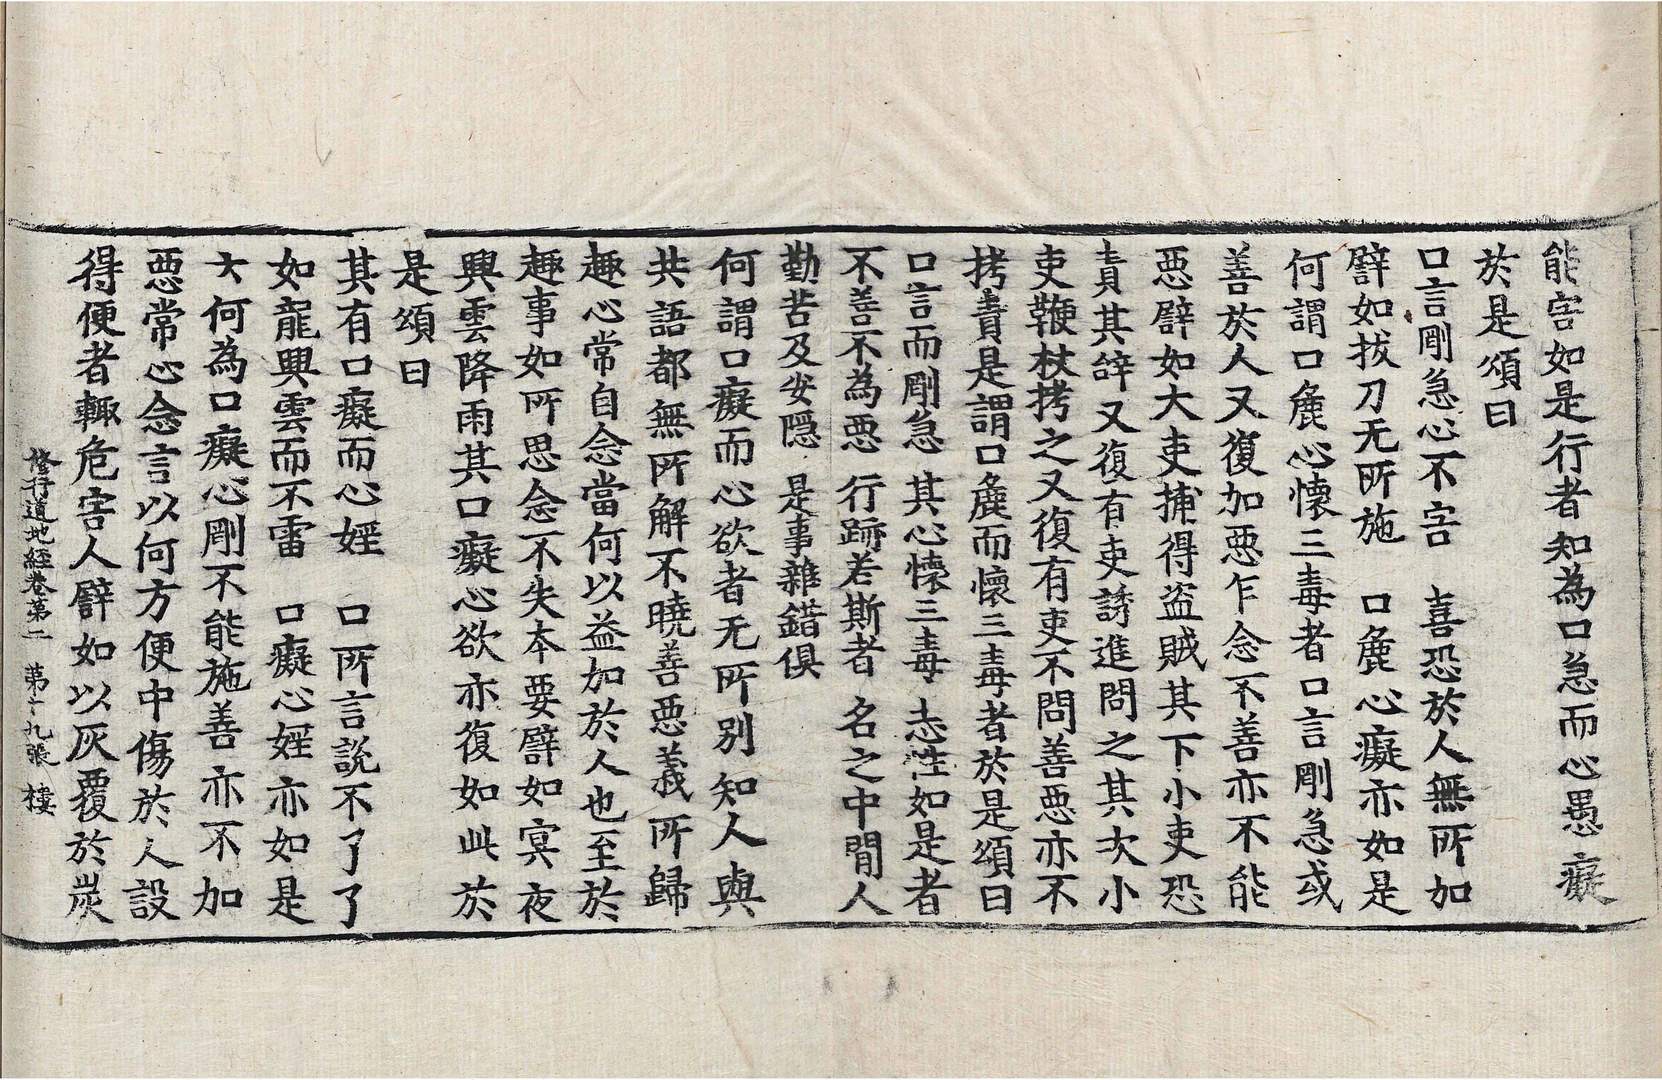 能害如是行者知為口急而心愚癡
於是頌曰
口言剛急心不害　喜恐於人無所加
譬如拔刀无所施　口麁心癡亦如是
何謂口麁心懷三毒者口言剛急或
善於人又復加惡乍念不善亦不能
惡譬如大吏捕得盜賊其下小吏恐
責其辝又復有吏誘進問之其次小
吏鞭杖拷之又復有吏不問善惡亦不
拷責是謂口麁而懷三毒者於是頌曰
口言而剛急　其心懷三毒　志性如是者
不善不為惡　行跡若斯者　名之中間人
勤苦及安隱　是事雜錯俱
何謂口癡而心欲者无所別知人與
共語都無所解不曉善惡義所歸
趣心常自念當何以益加於人也至於
趣事如所思念不失本要譬如冥夜
興雲降雨其口癡心欲亦復如此於
是頌曰
其有口癡而心婬　口所言說不了了
如龍興雲而不雷　口癡心婬亦如是
大何為口癡心剛不能施善亦不加
惡常心念言以何方便中傷於人設
得便者輙危害人譬如以灰覆於炭
修行道地經卷第二　第十九張　樓